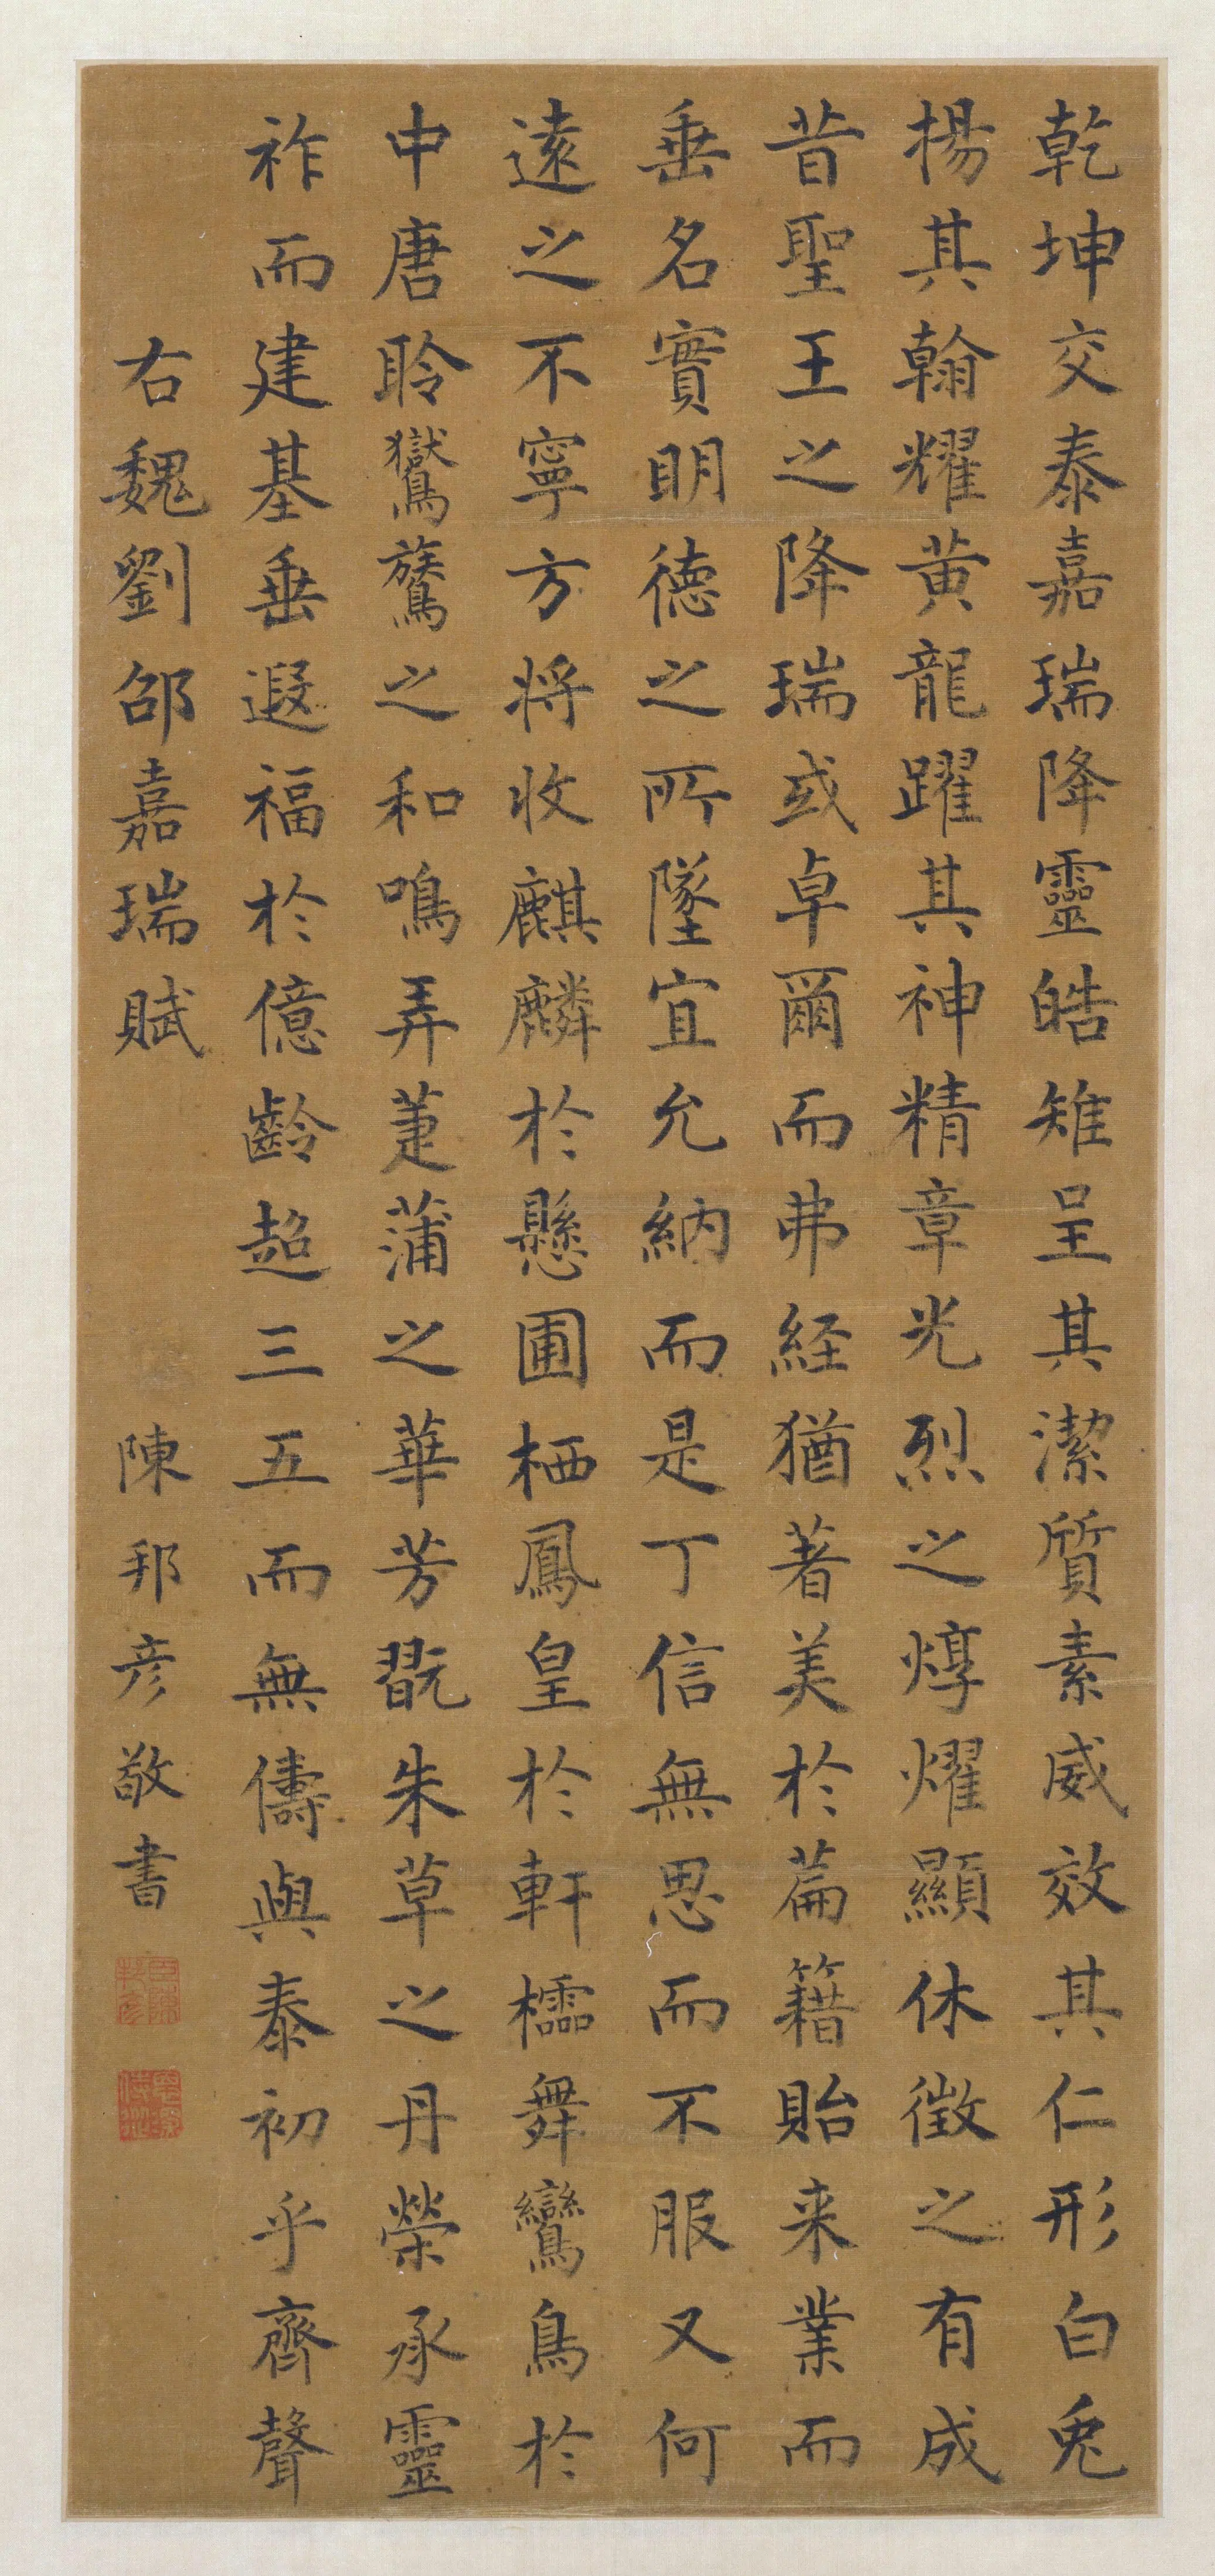 乾坤交泰嘉瑞降靈皓雉呈其潔質素威效其仁形白兎
揚其翰耀黃龍躍其神精章光烈之焞燿顯休徵之有成
昔聖王之降瑞或卓爾而弗經猶著美於篇籍貽来業而
垂名實明德之所墜宜允納而是丁信無思而不服又何
遠之不寧方将收麒麟於懸圃栖鳳皇於軒櫺舞鸞鳥於
中唐聆鸑鷟之和鳴弄萐蒲之華芳翫朱草之丹榮承靈
祚而建基垂遐福於億齡超三五而無儔與泰初乎齊聲
右魏劉邵嘉瑞賦
陳邦彦敬書